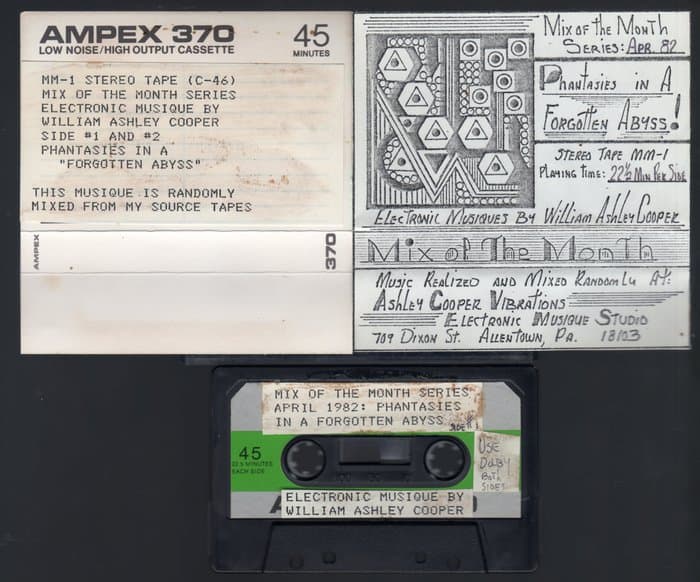 AMPEX 370
LOW NOISE/HIGH OUTPUT CASSETTE
45
MINUTES
MM-1 STEREO TAPE (C-46)
MIX OF THE MONTH SERIES
ELECTRONIC MUSIQUE BY
WILLIAM ASHLEY COOPER
SIDE #1 AND #2
PHANTASIES IN A
"FORGOTTEN ABYSS"
THIS MUSIQUE IS RANDOMLY
MIXED FROM MY SOURCE TAPES
AMPEX
370
Mix of the Month
Series: Apr. 82
Phantasies in A
Forgotten Abyss!
Stereo Tape MM-1
Playing Time: 22½ Min Per Side
Electronic Musiques By William Ashley Cooper
Mix of The Month
Music Realized and Mixed Randomly At:
Ashley Cooper Vibrations
Electronic Musique Studio
709 Dixon St. Allentown, Pa. 18103
MIX OF THE MONTH SERIES
APRIL 1982: PHANTASIES
IN A FORGOTTEN ABYSS
SIDE #1
45
22.5 MINUTES
EACH SIDE
USE
Dolby
Both
Sides
ELECTRONIC MUSIQUE BY
WILLIAM ASHLEY COOPER